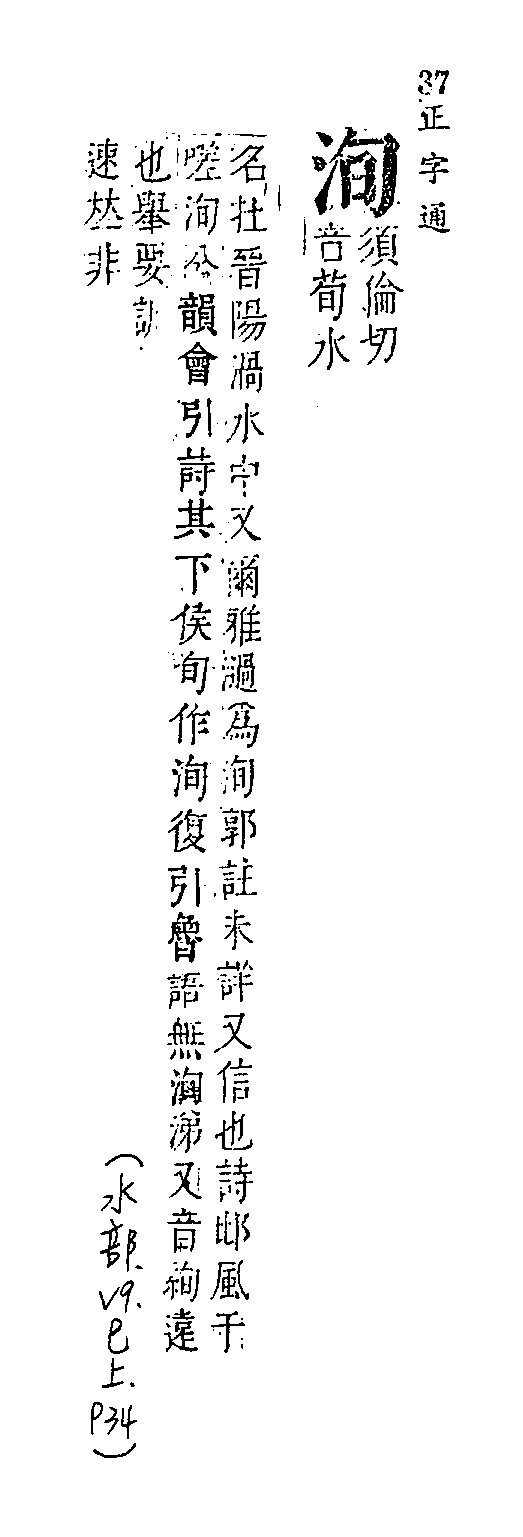 37正字通
洵
須倫切
音荀水
名在晉陽渦水中又爾雅濄爲洵郭註未詳又信也詩邶風于
嗟洵兮韻會引詩其下侯旬作洵復引魯語無洵涕又音絢遠
也舉要訓
速𠀤非
(水部.v9.巳上.p34)